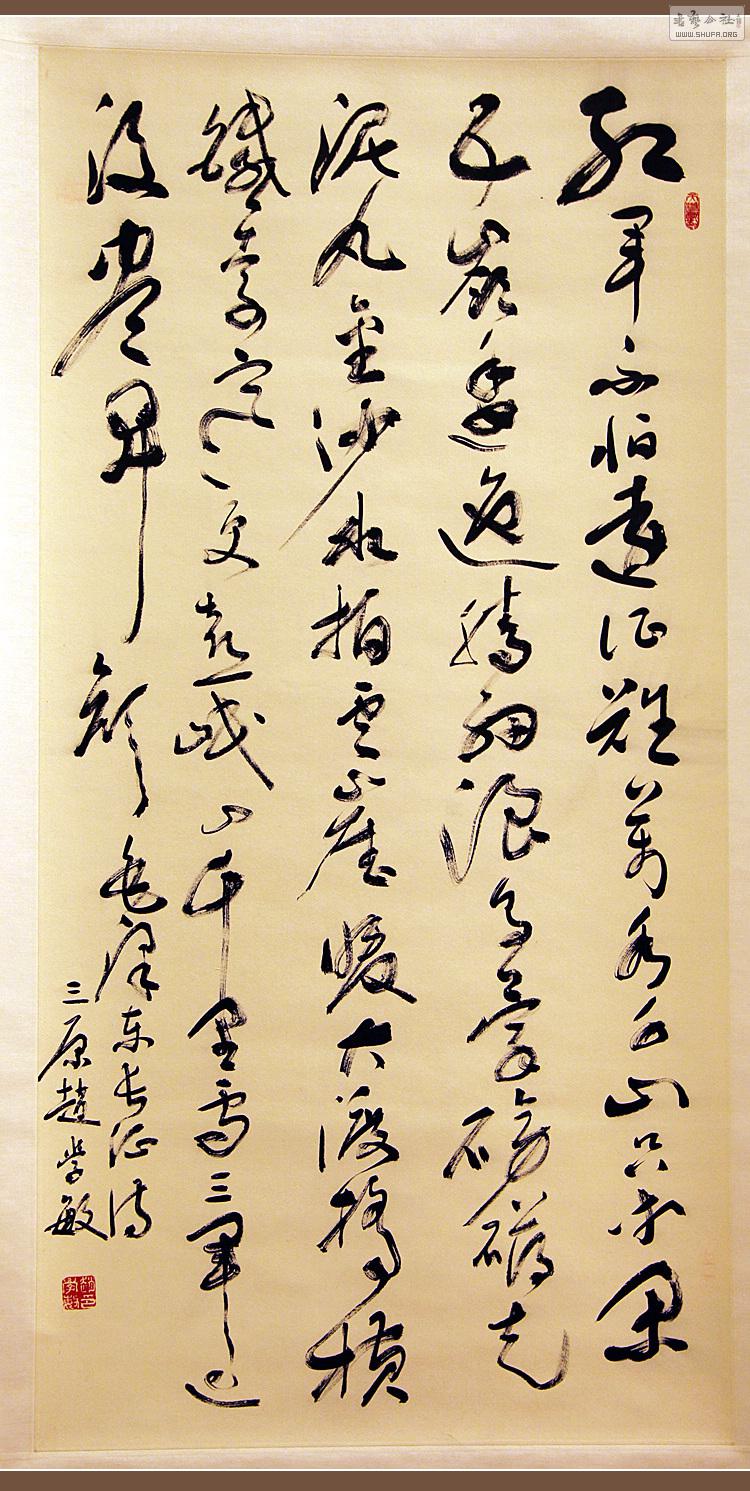 红军不怕遠征难萬水千山只等闲
五岭逶迤腾细浪乌蒙磅礴走
泥丸金沙水拍雲崖暖大渡桥横
鐵索寒更喜岷山千里雪三军过
後尽开颜 毛泽东长征诗
三原趙学敏
书艺公社
WWW.SHUFA.ORG